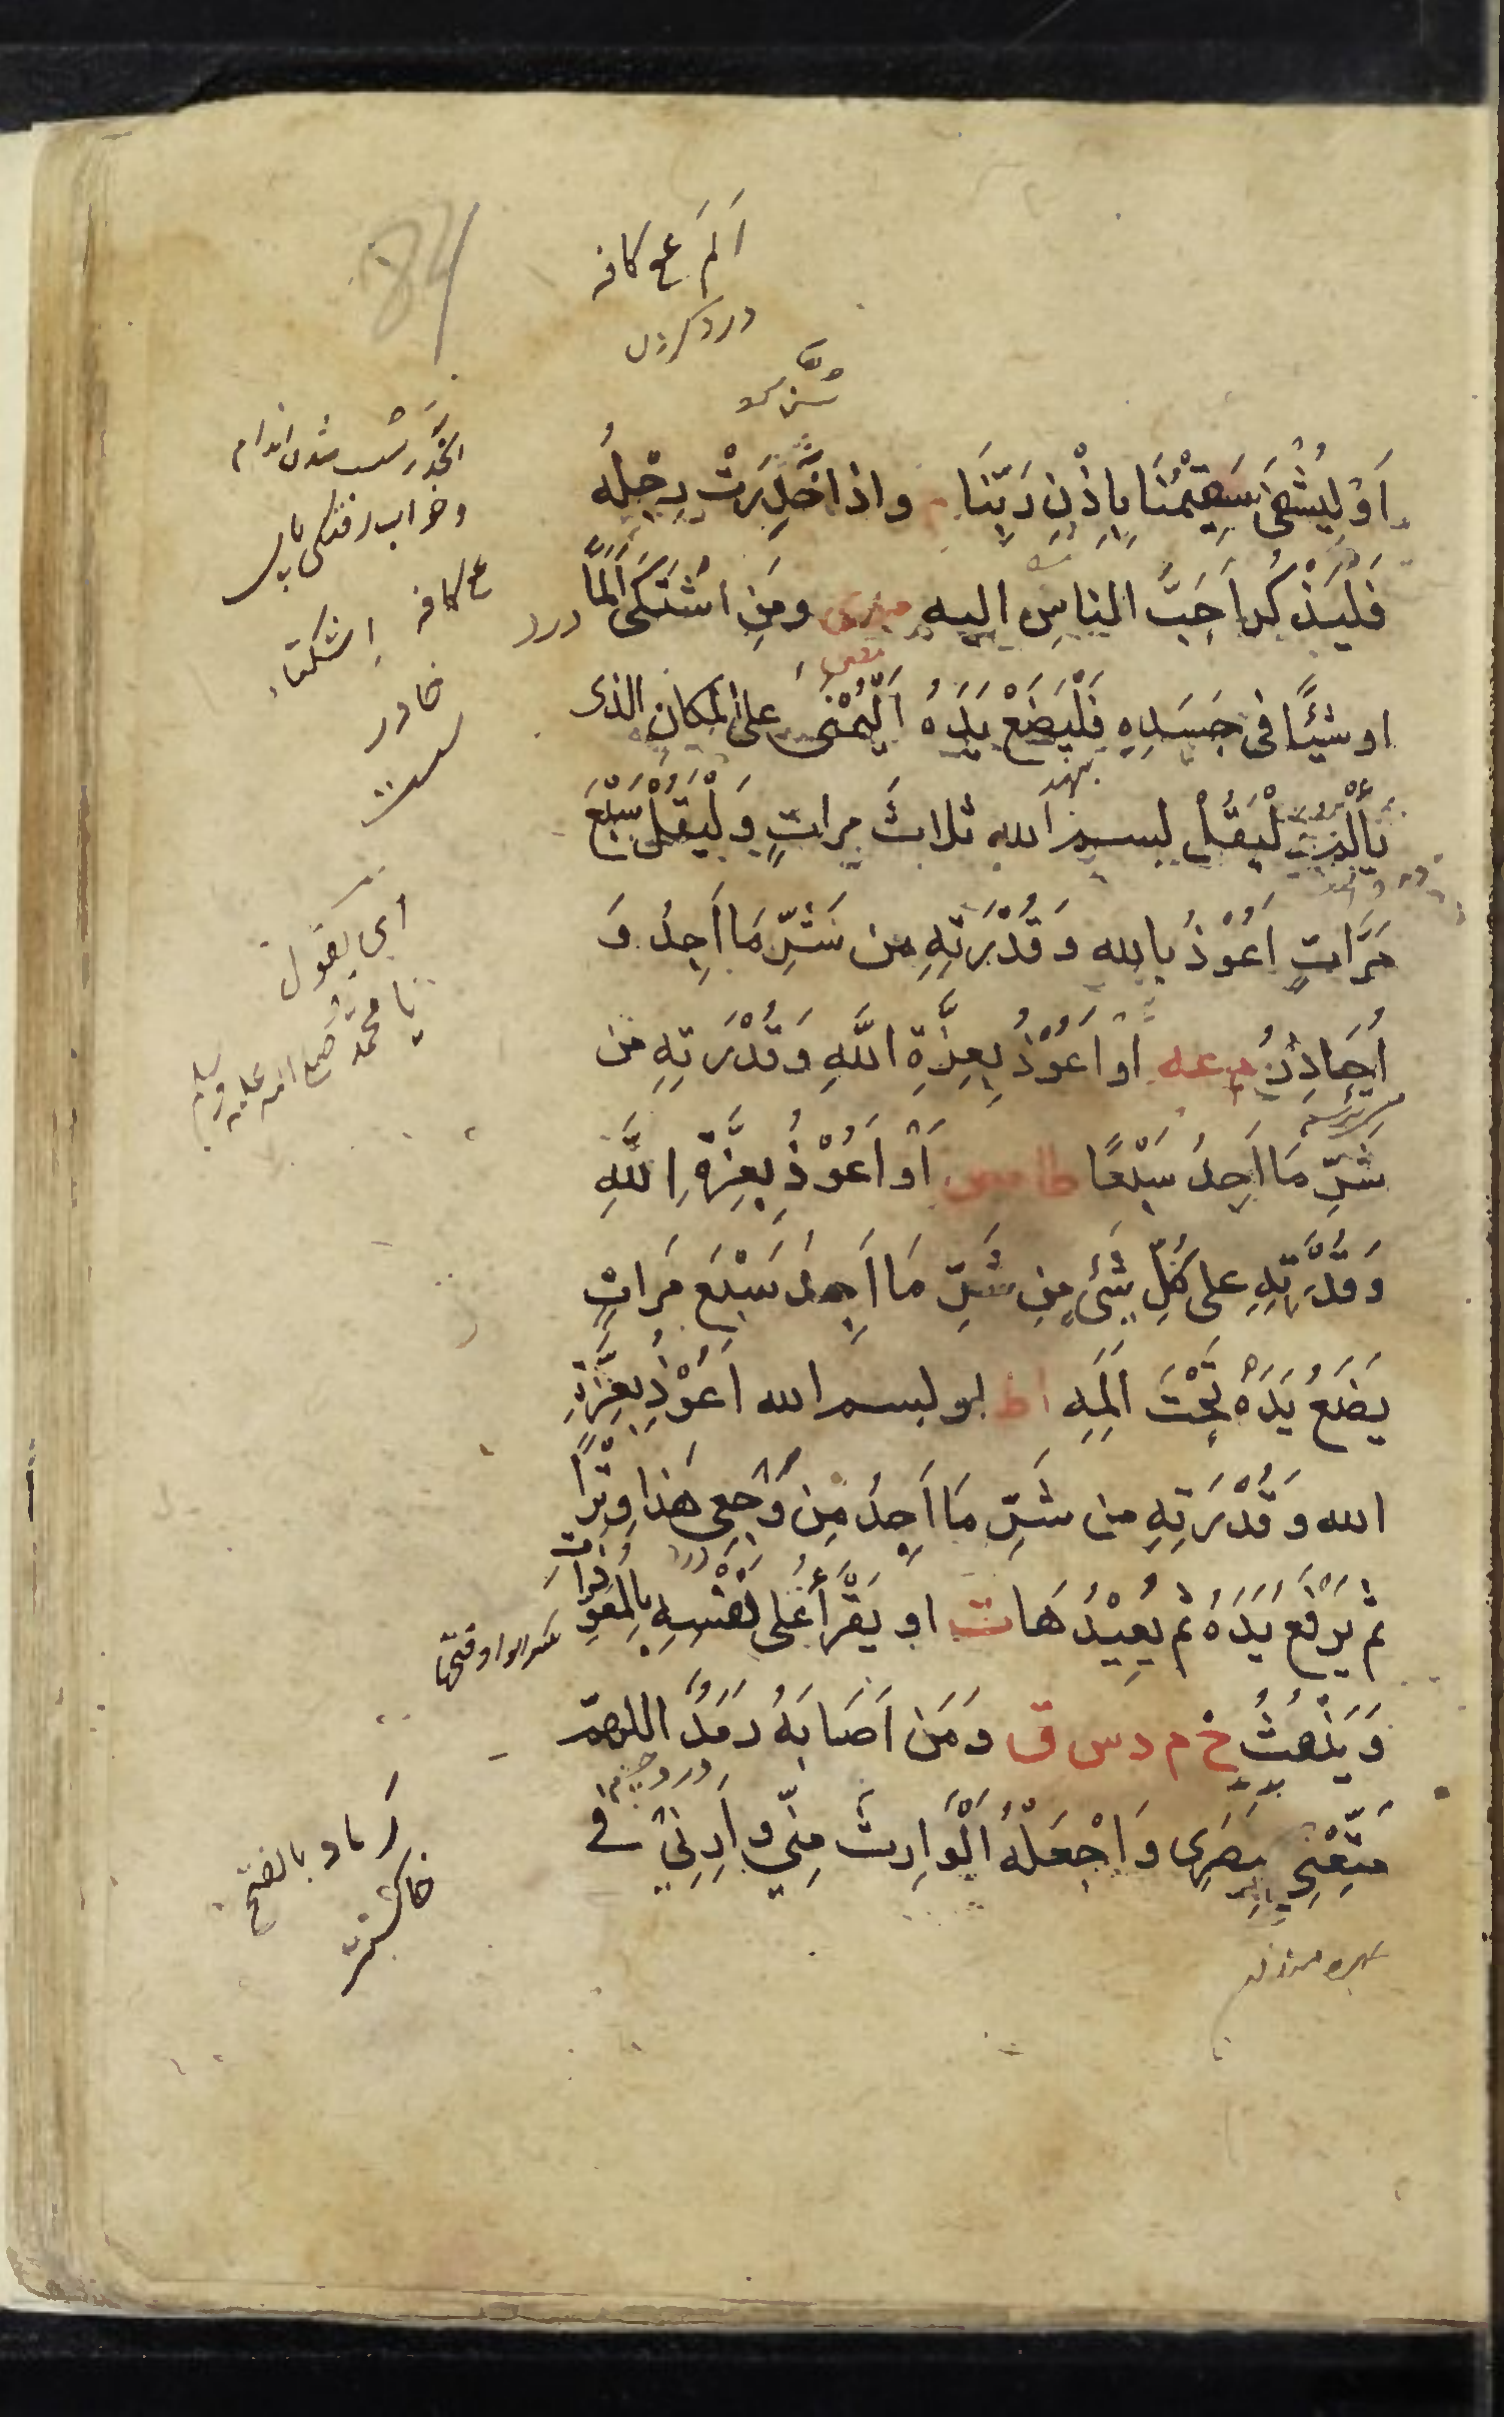 اَلَم ع كافه
درد كردن
اَوْ لِيُشْفَى سَقِيْمُنَا بِاِذْنِ رَبِّنَا م واذا خَدِرَتْ رِجْلُهُ
فَلْيَذْكُرْ اَحَبَّ الناسِ اليه موى ومَنِ اشْتَكَى اَلَمًا درد
او شَيْئًا فى جَسَدِهِ فَلْيَضَعْ يَدَهُ اَلْيُمْنَى على المكانِ الذى
يَأْلَمُ لْيَقُلْ بسم الله ثلاثَ مراتٍ وَلْيَقُلْ سَبْعَ
مَرَّاتٍ اَعُوْذُ بالله وَقُدْرَتِهِ من شَرِّ مَا اَجِدُ وَ
اُحَاذِرُ م عه اَوْ اَعُوْذُ بِعِزَّةِ اللَّهِ وَقُدْرَتِهِ من
شَرِّ مَا اَجِدُ سَبْعًا طا مص اَوْ اَعُوْذُ بِعِزَّةِ اللَّهِ
وَقُدْرَتِهِ على كُلِّ شَىْءٍ مِنْ شَرِّ مَا اَجِدُ سَبْعَ مَرَاتٍ
يَضَعُ يَدَهُ تَحْتَ اَلَمِهِ ا ط او بسم الله اَعُوْذُ بِعِزَّةِ
الله وَقُدْرَتِهِ من شَرِّ مَا اَجِدُ مِنْ وَجَعِى هَذَا وِتْرًا
ثم يَرْفَعُ يَدَهُ ثم يُعِيْدُهَا ت او يَقْرَأُ عَلى نَفْسِهِ بِالْمُعَوِّذَاتِ
بكسر الواو وفتحها
وَيَنْفُثُ خ م د س ق وَمَنْ اَصَابَهُ رَمَدٌ اللهم
درد چشم
مَتِّعْنِى بِبَصَرِى وَاجْعَلْهُ اَلْوَارِثَ مِنِّى وَاَرِنِى فى
بهره مند
الخَدَر سست شدن اندام
و خواب رفتگى پاى
ع كافه اِشتكاء
خادر
سست
اى يقول
يا محمد صلى الله عليه وسلم
رَماد بالفتح
خاكستر
84